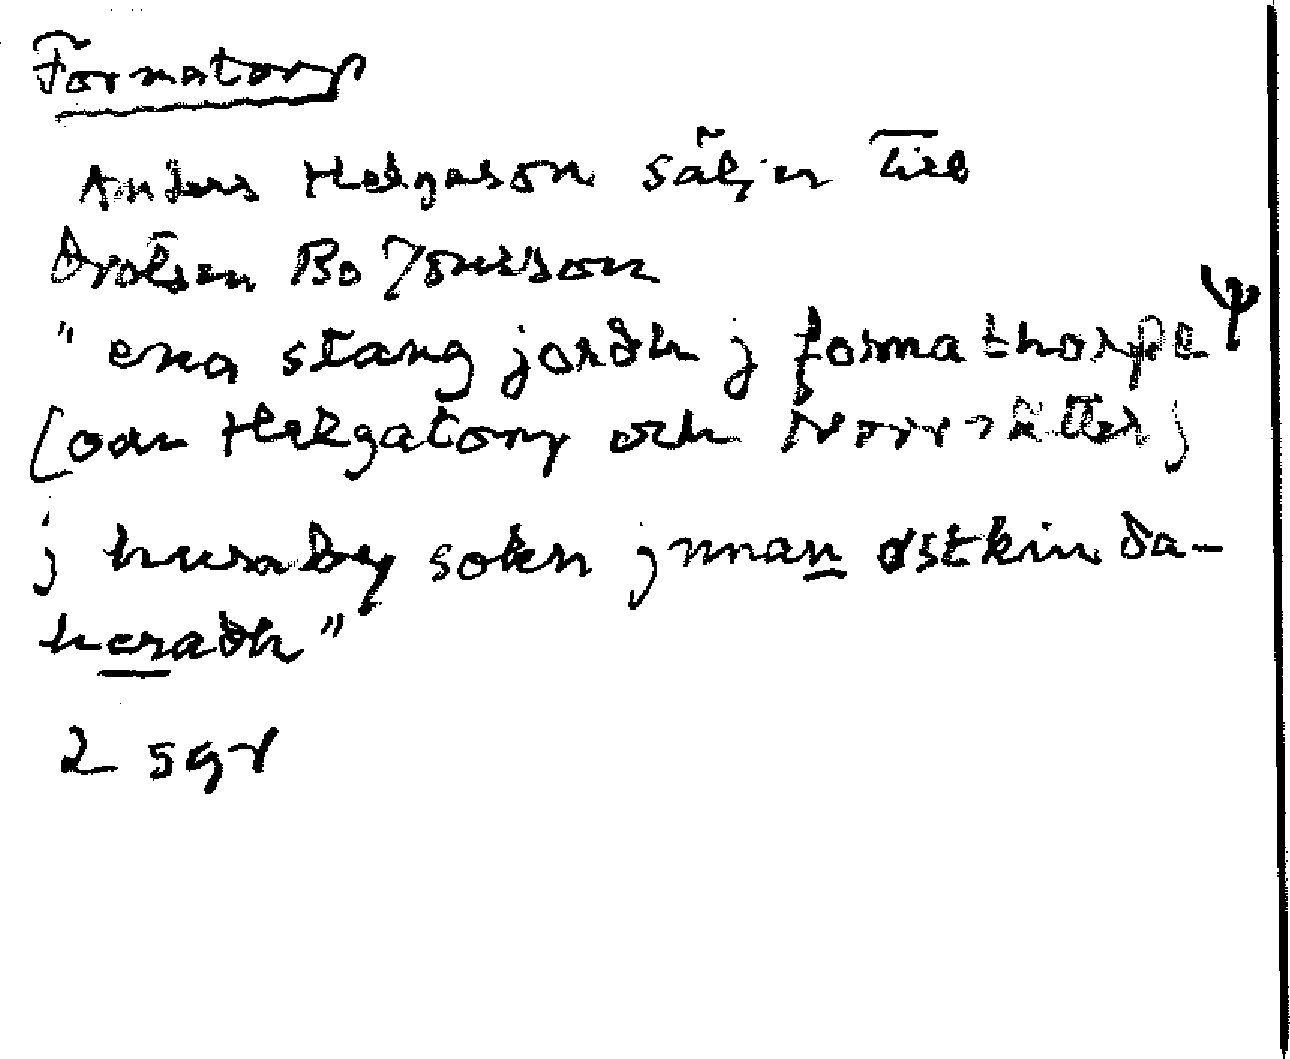 Formatorp
Anders Helgesson säljer till
Drotsen Bo Jonsson
"ena stang jordh j formathorpe
[och Helgatorp och Norrsätter]
j husaby sokn jnnan østkinda-
heradh"
2 sgr